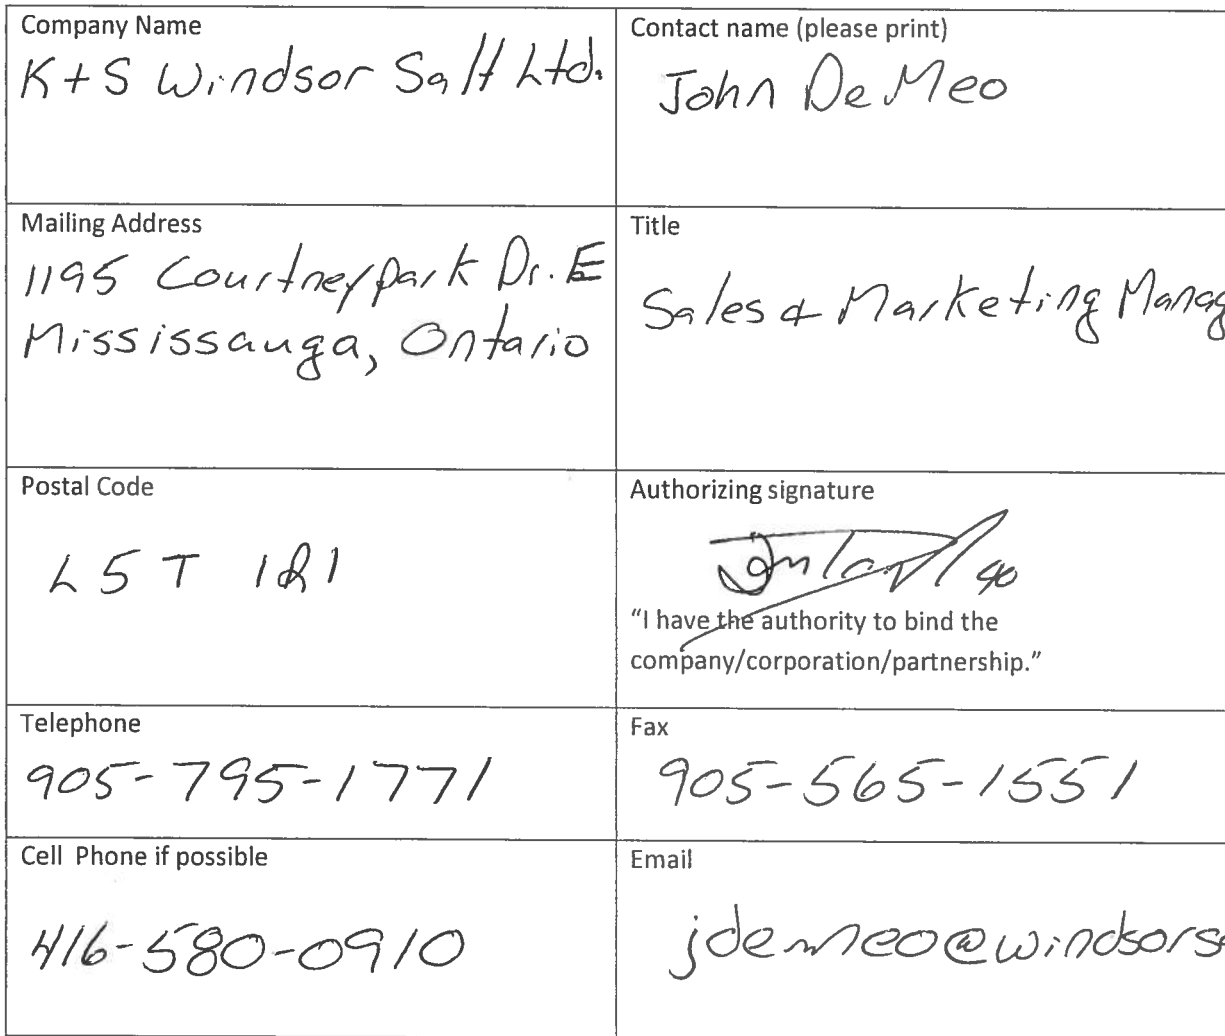 Company Name
K+S Windsor Salt Ltd.
Contact name (please print)
John DeMeo
Mailing Address
1195 Courtneypark Dr. E
Mississauga, Ontario
Title
Sales & Marketing Manag
Postal Code
L5T 1R1
Authorizing signature
"I have the authority to bind the
company/corporation/partnership."
Telephone
905-795-1771
Fax
905-565-1551
Cell Phone if possible
416-580-0910
Email
jdemeo@windsors